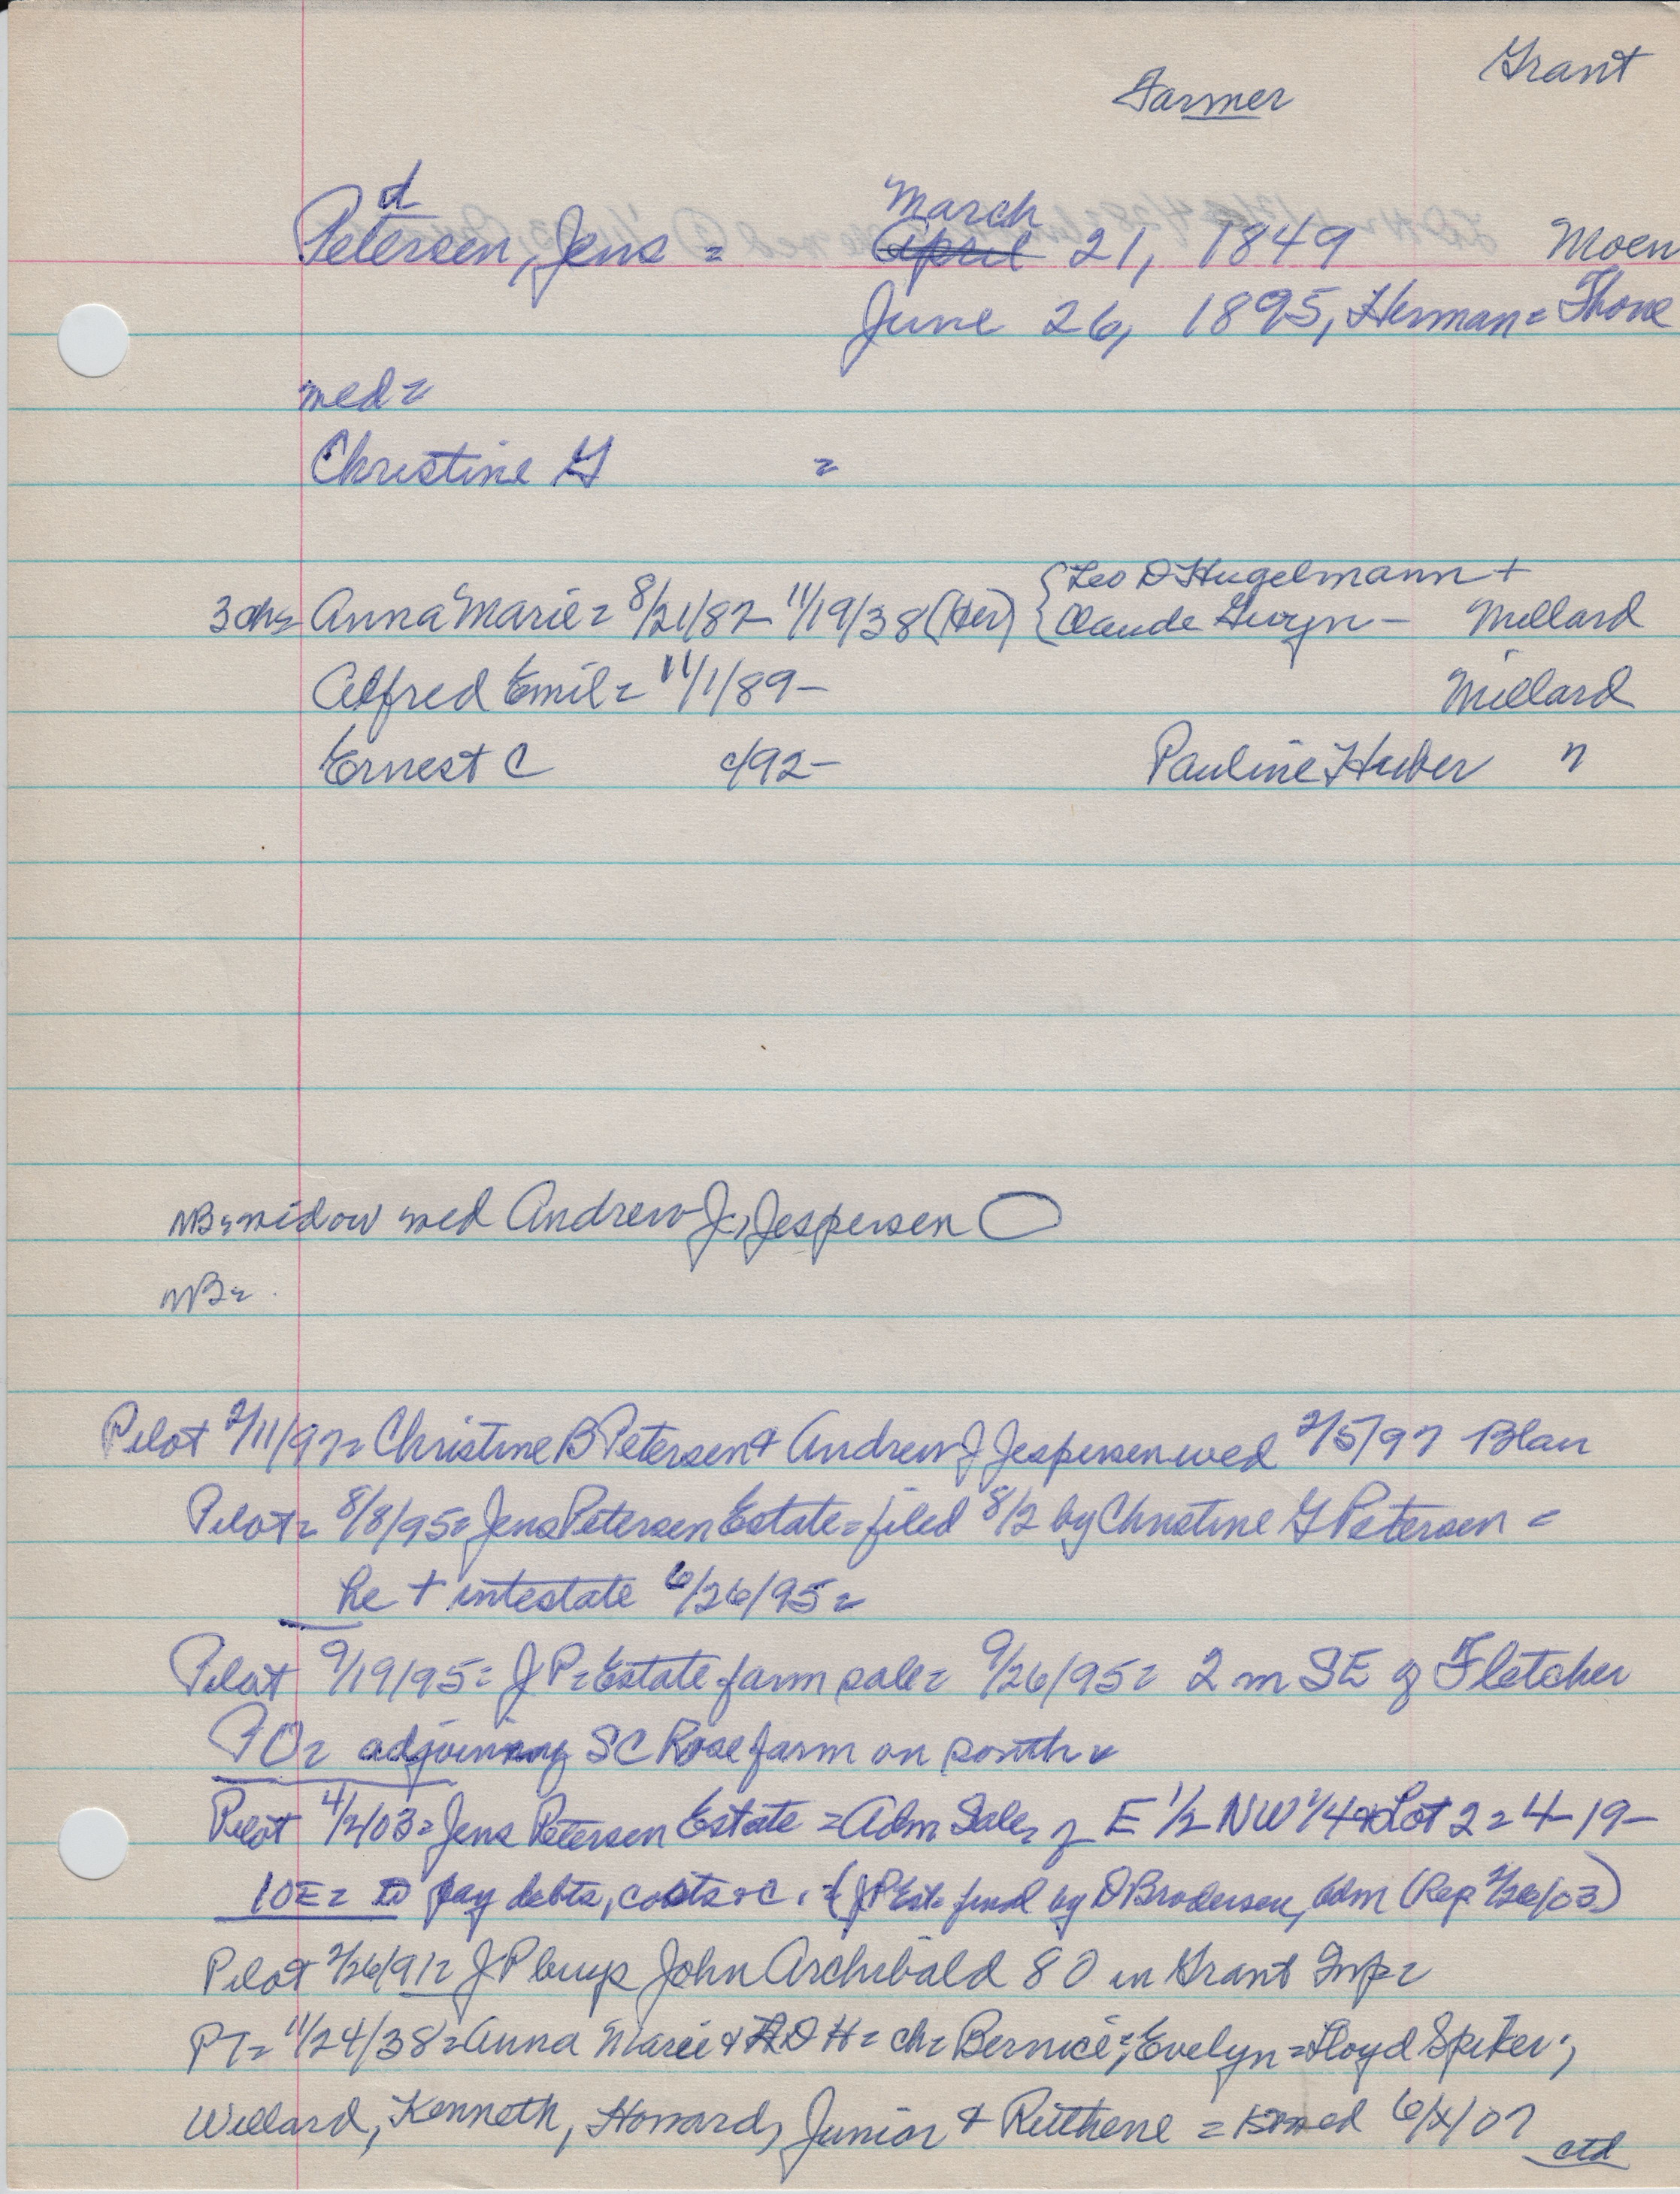 Grant
Farmer
d
March
Petersen, Jens = April 21, 1849 Moen
June 26, 1895, Herman = Thone
med =
Christine G =
3 ch = Anna Marie = 8/21/87- 11/19/38 (Her) { Leo D Hugelmann +
Claude Gwyn - Millard
Alfred Emil = 11/1/89- Millard
Ernest C c/92- Pauline Huber "
NB = widow med Andrew J, Jespersen
NB =
Pilot 2/11/97 = Christine B Petersen & Andrew J Jespersen wed 2/5/97 Blair
Pilot = 8/8/95 = Jens Petersen Estate = filed 8/2 by Christine G Petersen =
he + intestate 6/26/95 =
Pilot 9/19/95 = J P = Estate farm sale = 9/26/95 = 2 m SE of Fletcher
PO = adjoining SC Rose farm on south =
Pilot 4/2/03 = Jens Petersen Estate = Adm Sale, of E 1/2 NW 1/4 & Lot 2 = 4-19-
10E = to pay debts, costs &c. = (JP Est = final by D Brodersen, Adm (Rep 2/26/03)
Pilot 2/26/91 = J P buys John Archibald 80 in Grant Twp =
PT = 11/24/38 = Anna Marie & D H = ch = Bernice; Evelyn = Floyd Spiker;
Willard, Kenneth, Howard, Junior & Ruthene = 6/4/07
ctd